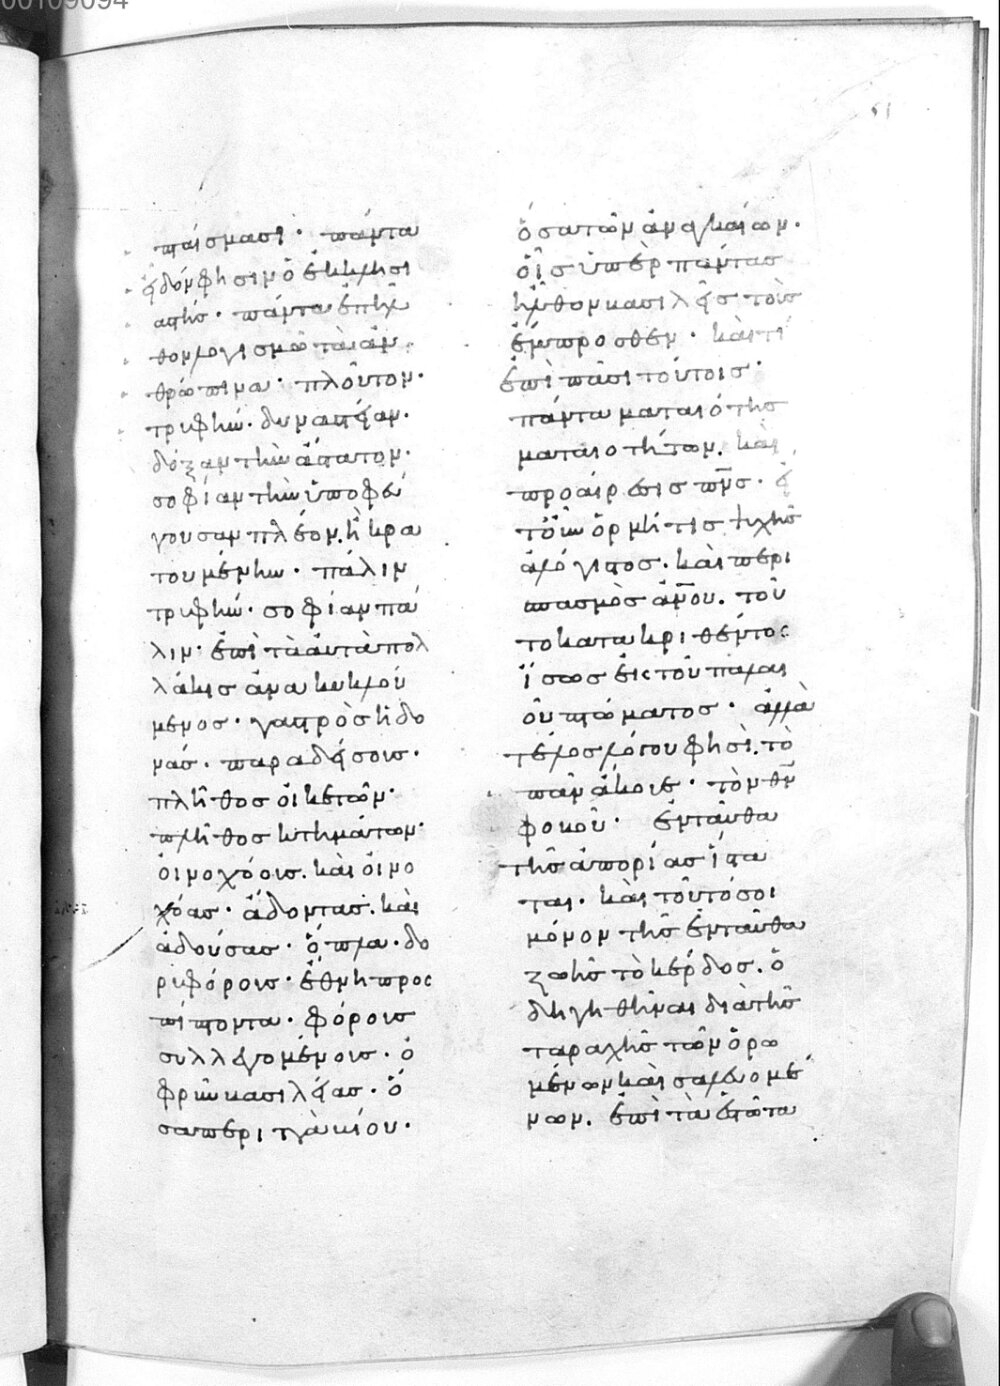 00109094
51
πταίσμασι· πάντα
ἐδόνθησιν ὁ ἐκκλησι
αστής· πάντα ἐπῆλ
θον λογισμῶ τὰ ἀν
θρώπινα· πλοῦτον·
τρυφήν· δυναστείαν·
δόξαν τὴν ἄστατον·
σοφίαν τὴν ὑποφεύ
γουσαν πλέον, ἢ κρα
τουμένην· πάλιν
τρυφήν· σοφίαν πά
λιν· ἐπὶ τὰ αὐτὰ πολ
λάκις ἀνακυκλού
μενος· γαστρὸς ἡδο
νάς· παραδείσους·
πλῆθος οἰκετῶν·
πλῆθος κτημάτων·
οἰνοχόους· καὶ οἰνο
χόας· ἄδοντας· καὶ
ἀδούσας· ὅπλα· δο
ρυφόρους· ἔθνη προς
πίπτοντα· φόρους
συλλεγομένους· ὀ
φρὺν βασιλείας· ὅ
σα περιττὰ βίου·
ὅσα τῶν ἀναγκαίων·
οἷς ὑπὲρ πάντας
ἦλθον βασιλεῖς τοὺς
ἔμπροσθεν· καὶ τί
ἐπὶ πᾶσι τούτοις·
πάντα ματαιότης
ματαιοτήτων· καὶ
προαίρεσις πνς· εἴ
τουν ὁρμή τις ψυχῆς
ἀλόγιστος· καὶ περι
σπασμὸς ἀνου· τοῦ
το κατακριθέντος
ἴσως ἐκ τοῦ παλαι
οῦ πτώματος· ἀλλὰ
τέλος λόγου φησὶ, τὸ
πᾶν ἄκουε· τὸν θν
φοβοῦ· ἐνταῦθα
τῆς ἀπορίας ἵστα
ται· καὶ τοῦτό σοι
μόνον τῆς ἐνταῦθα
ζωῆς τὸ κέρδος· ὁ
δηγηθῆναι διὰ τῆς
ταραχῆς τῶν ὁρω
μένων καὶ σαλευομέ
νων· ἐπὶ τὰ ἑστῶτα